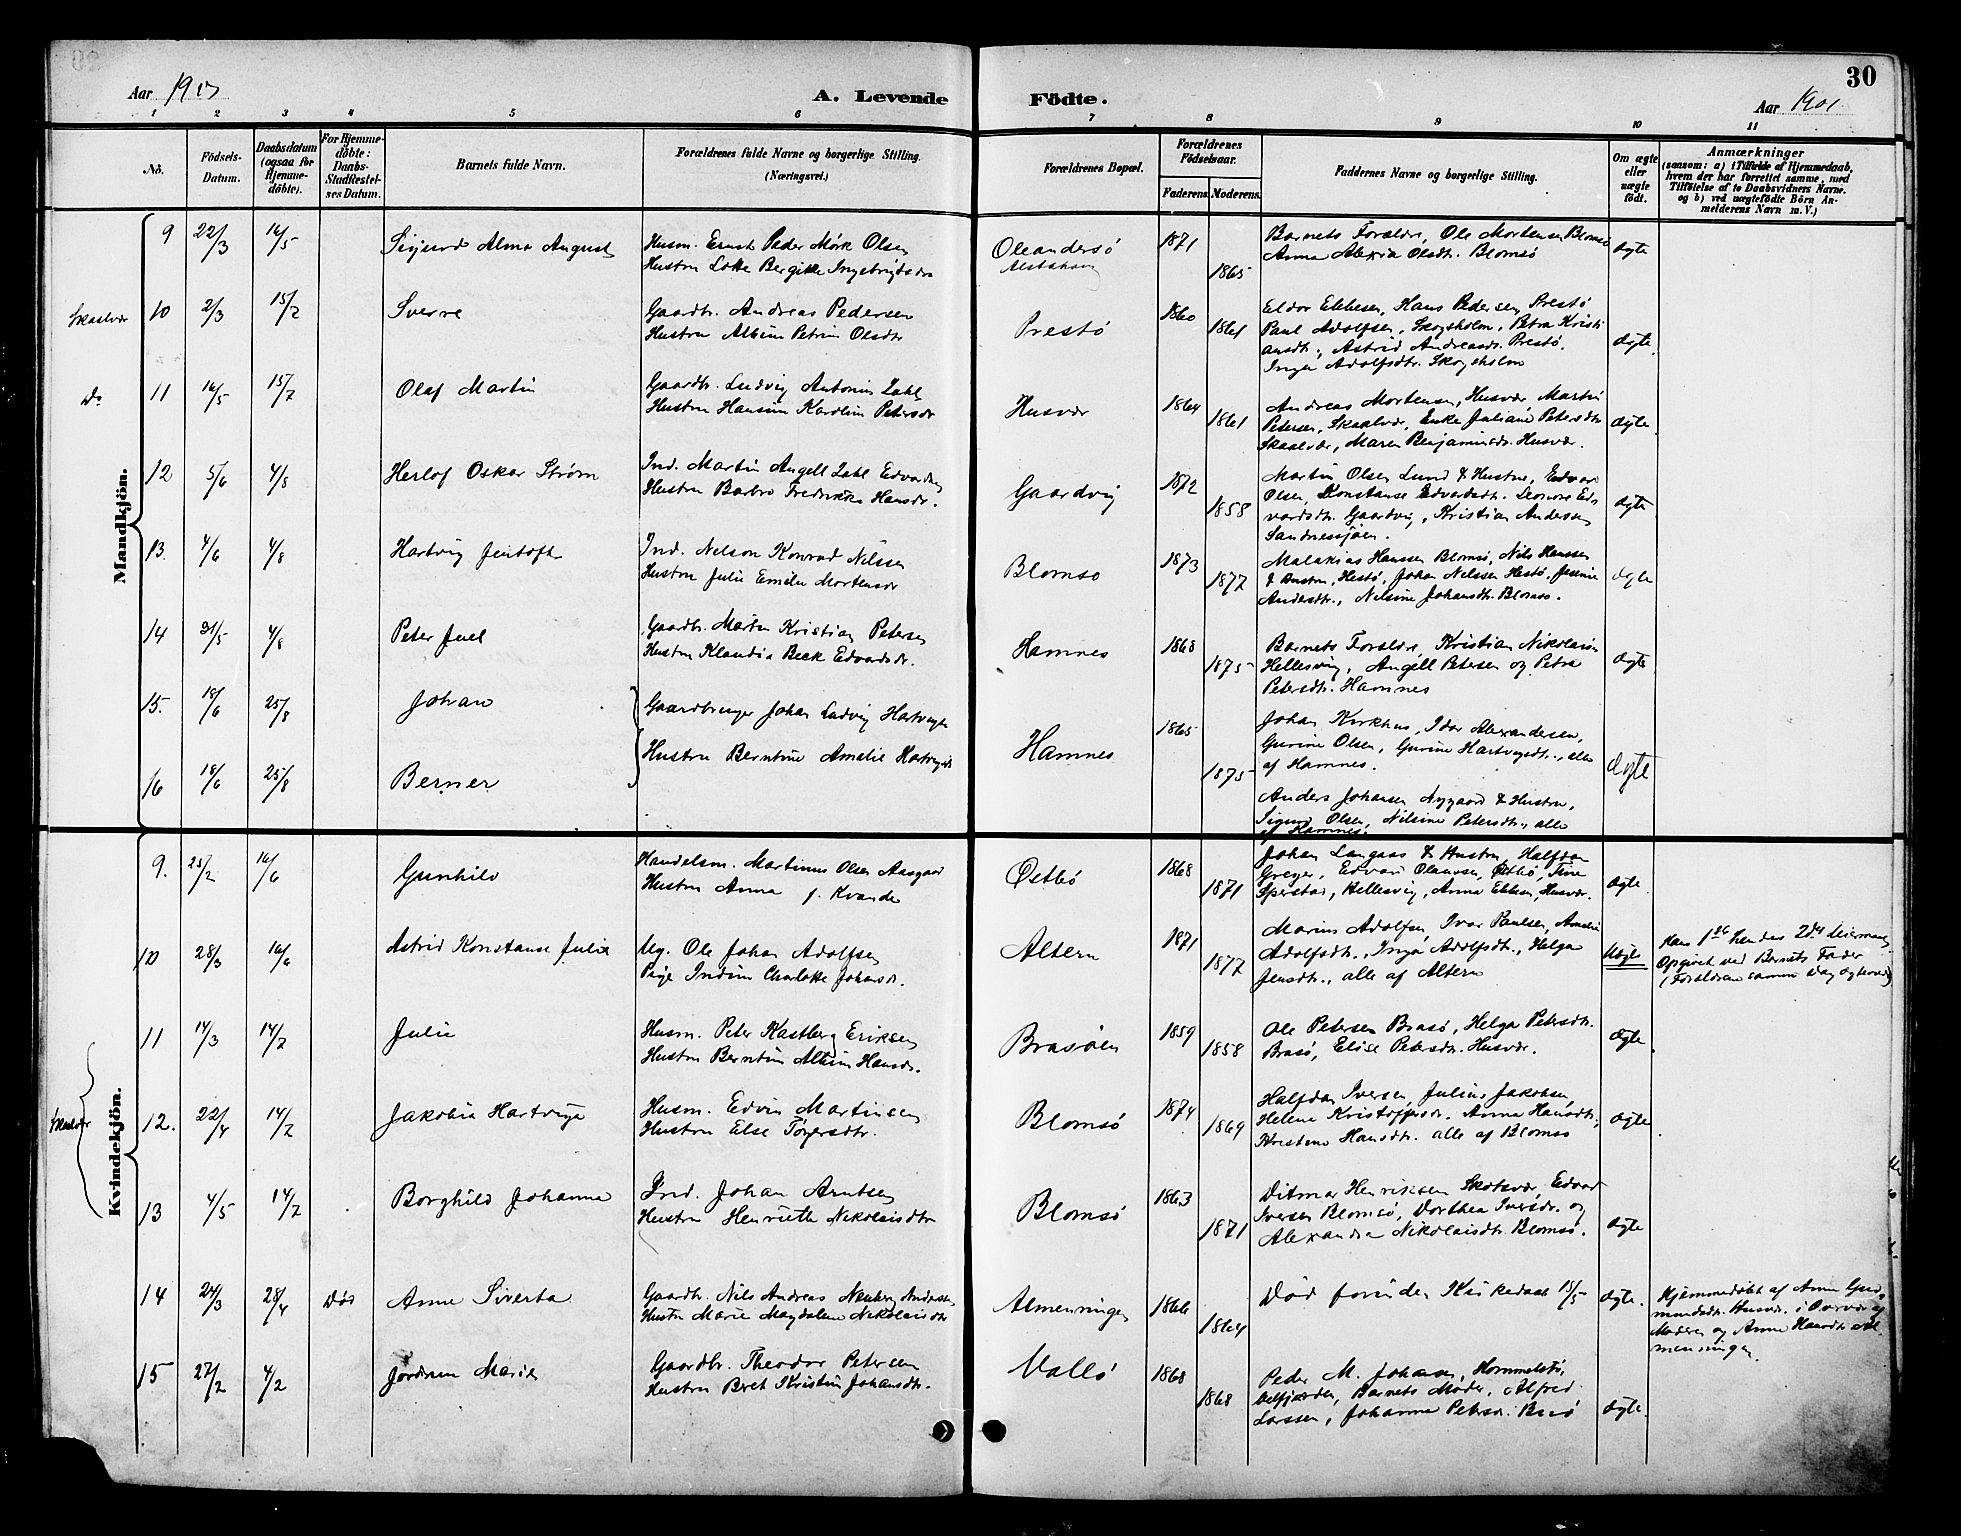 30
Aar 1901
A. Levende Födte.
Aar 1901
1 2 3 4 5 6 7 8 9 10 11
No.
Födsels-Datum.
Daabsdatum (ogsaa för Hjemmedöbte).
For Hjemmedöbte: Daabs-Stadfæstelses Datum.
Barnets fulde Navn.
Forældrenes fulde Navne og borgerlige Stilling.
(Næringsvei.)
Forældrenes Bopæl.
Forældrenes Födselsaar.
Faderens.
Moderens.
Faddernes Navne og borgerlige Stilling.
Om ægte eller uægte födt.
Anmærkninger
(saasom: a) i Tilfælde af Hjemmedaab,
hvem der har forrettet samme, med
Tilföielse af to Daabsvidners Navne.
og b) ved uægtefödte Börn Anmelderens Navn m.V.)
Mandkjön.
9 22/3 16/5 Sigurd Alma August
Husm. Ernst Peder Mørk Olsen
Hustru Lotte Bergitte Ingebrigtsdr
Oleandersø
Alstahaug
1871 1865
Barnets Forældre, Ole Mortensen Blomsø
Anna Alexia Olsdtr. Blomsø
ægte
Skaalvær 10 2/3 15/7 Sverre
Gaardbr. Andreas Pedersen
Hustru Albine Petrine Olsdtr
Prestø
1860 1861
Eldor Ebbesen, Hans Pedersen, Prestø
Paul Adolfsen, Skogsholm, Petra Kristi
ansdtr., Astrid Andreasdr. Prestø.
Inga Adolfsdtr. Skogsholm
ægte.
Do 11 16/5 15/7 Olaf Martin
Gaardbr. Ludvig Antonius Zahl
Hustru Hansine Karoline Petersdr
Husvær
1864 1861
Andreas Mortensen, Husvær Martin
Petersen, Skaalvær, Enke Juliane Petersdtr
Skaalvær, Maren Benjaminsdr. Husvær.
ægte.
12 5/6 4/8 Herlof Oskar Strøm
Ind. Martin Angell Zahl Edvardsen
Hustru Barbro Fredrikke Hansdr.
Gaardvig
1872 1858
Martin Olsen Lund & Hustru, Edvard
Olsen, Konstanse Edvardsdtr. Leonore Ed-
vardsdtr. Gaardvig, Kristian Andersen
Sandnessjøen.
ægte
13. 4/6 4/8 Hartvig Jentoft
Ind. Nelson Konrad Nilssen
Hustru Julie Emilie Mortensdr
Blomsø
1873 1877
Malakias Hanssen Blomsø, Nils Hanssen
& Hustru, Hestø, Johan Nelssen Hestø, Jensine
Andersdtr., Nilsine Johansdtr. Blomsø.
ægte
14 31/5 4/8 Peter Juel
Gaardbr. Martin Kristian Petersen
Hustru Klaudia Beck Edvardsdr.
Hamnes
1868 1875
Barnets Forældre, Kristian Nikolaisen
Hellesvig, Angell Petersen og Petra
Petersdtr. Hamnes
ægte
15. 18/6 25/8 Johan
Gaardbruger Johan Ludvig Hartvigsen
Hustru Berntine Amalie Hartvigsdr
Hamnes
1865 1875
Johan Kirkhus, Idar Alexandersen,
Gurine Olsen, Gurine Hartvigsdtr., alle
af Hamnes.
ægte
16 18/6 25/8 Berner
Anders Johansen Nygaard & Hustru,
Sigurd Olsen, Nilsine Petersdtr., alle
af Hamnes.
Kvindekjön.
9. 25/2 16/6 Gunhild
Handelsm. Martinus Olsen Aasgaard
Hustru Anna f. Kvande
Østbø
1868 1871
Johan Langaas & Hustru, Halfdan
Greger, Edvard Olausen, Østbø, Tine
Sperstad, Hellesvig, Anna Ebbesen, Husvær.
ægte.
10 28/3 16/6 Astrid Konstanse Julie
Ug. Ole Johan Adolfsen
Pige Indine Charlotte Johansdr.
Altern
1871 1877
Marius Adolfsen, Ivar Paulsen, Amalie
Adolfsdtr., Inga Adolfsdtr., Helga
Jensdtr., alle af Altern
Uægte
Hans 1ste hendes 2det Leiermaal
Opgivet ved Barnets Fader
(Forældrene samme Dag ægteviede)
11 14/3 14/7 Julie
Husm. Peter Kastberg Eriksen
Hustru Berntine Altine Hansdr.
Brasøen
1859 1858
Ole Petersen Brasø, Helga Petersdtr.
Brasø, Elise Petersdtr. Husvær.
ægte
Skaalvær 12. 22/4 14/7 Jakobia Hartviga
Husm. Edvin Martinsen
Hustru Else Tøgersdtr.
Blomsø
1874 1869
Halfdan Iversen, Julius Jakobsen,
Helene Kristoffersdr. Anna Hansdtr.,
Kristine Hansdtr. alle af Blomsø
ægte
13 4/5 14/7 Borghild Johanna
Ind. Johan Arntsen
Hustru Henriette Nikolaisdtr
Blomsø
1863 1871
Ditmar Henriksen Skotsvær, Edvard
Iversen Blomsø, Dorthea Iversdr. og
Alexandra Nikolaisdtr. Blomsø.
ægte
14 24/3 28/4 Død Anne Siverta
Gaardbr. Nils Andreas Nyberg Andersen
Hustru Marie Magdalene Nikolaisdtr
Almenningen
1866 1864
Død forinden Kirkedaab 15/5
ægte.
Hjemmedøbt af Anne Gud-
mundsdtr. Husvær. i Overvær af
Moderen og Anne Hansdtr. Al-
menningen
15 27/2 4/2 Jordrun Marie
Gaardbr. Theodor Petersen
Hustru Beret Kristine Johansdtr.
Vallø
1868 1868
Peder M. Johansen, Hommelstø,
Velfjorden, Barnets Moder, Alfred
Larssen, Johanna Petersdr. Brasø
ægte.